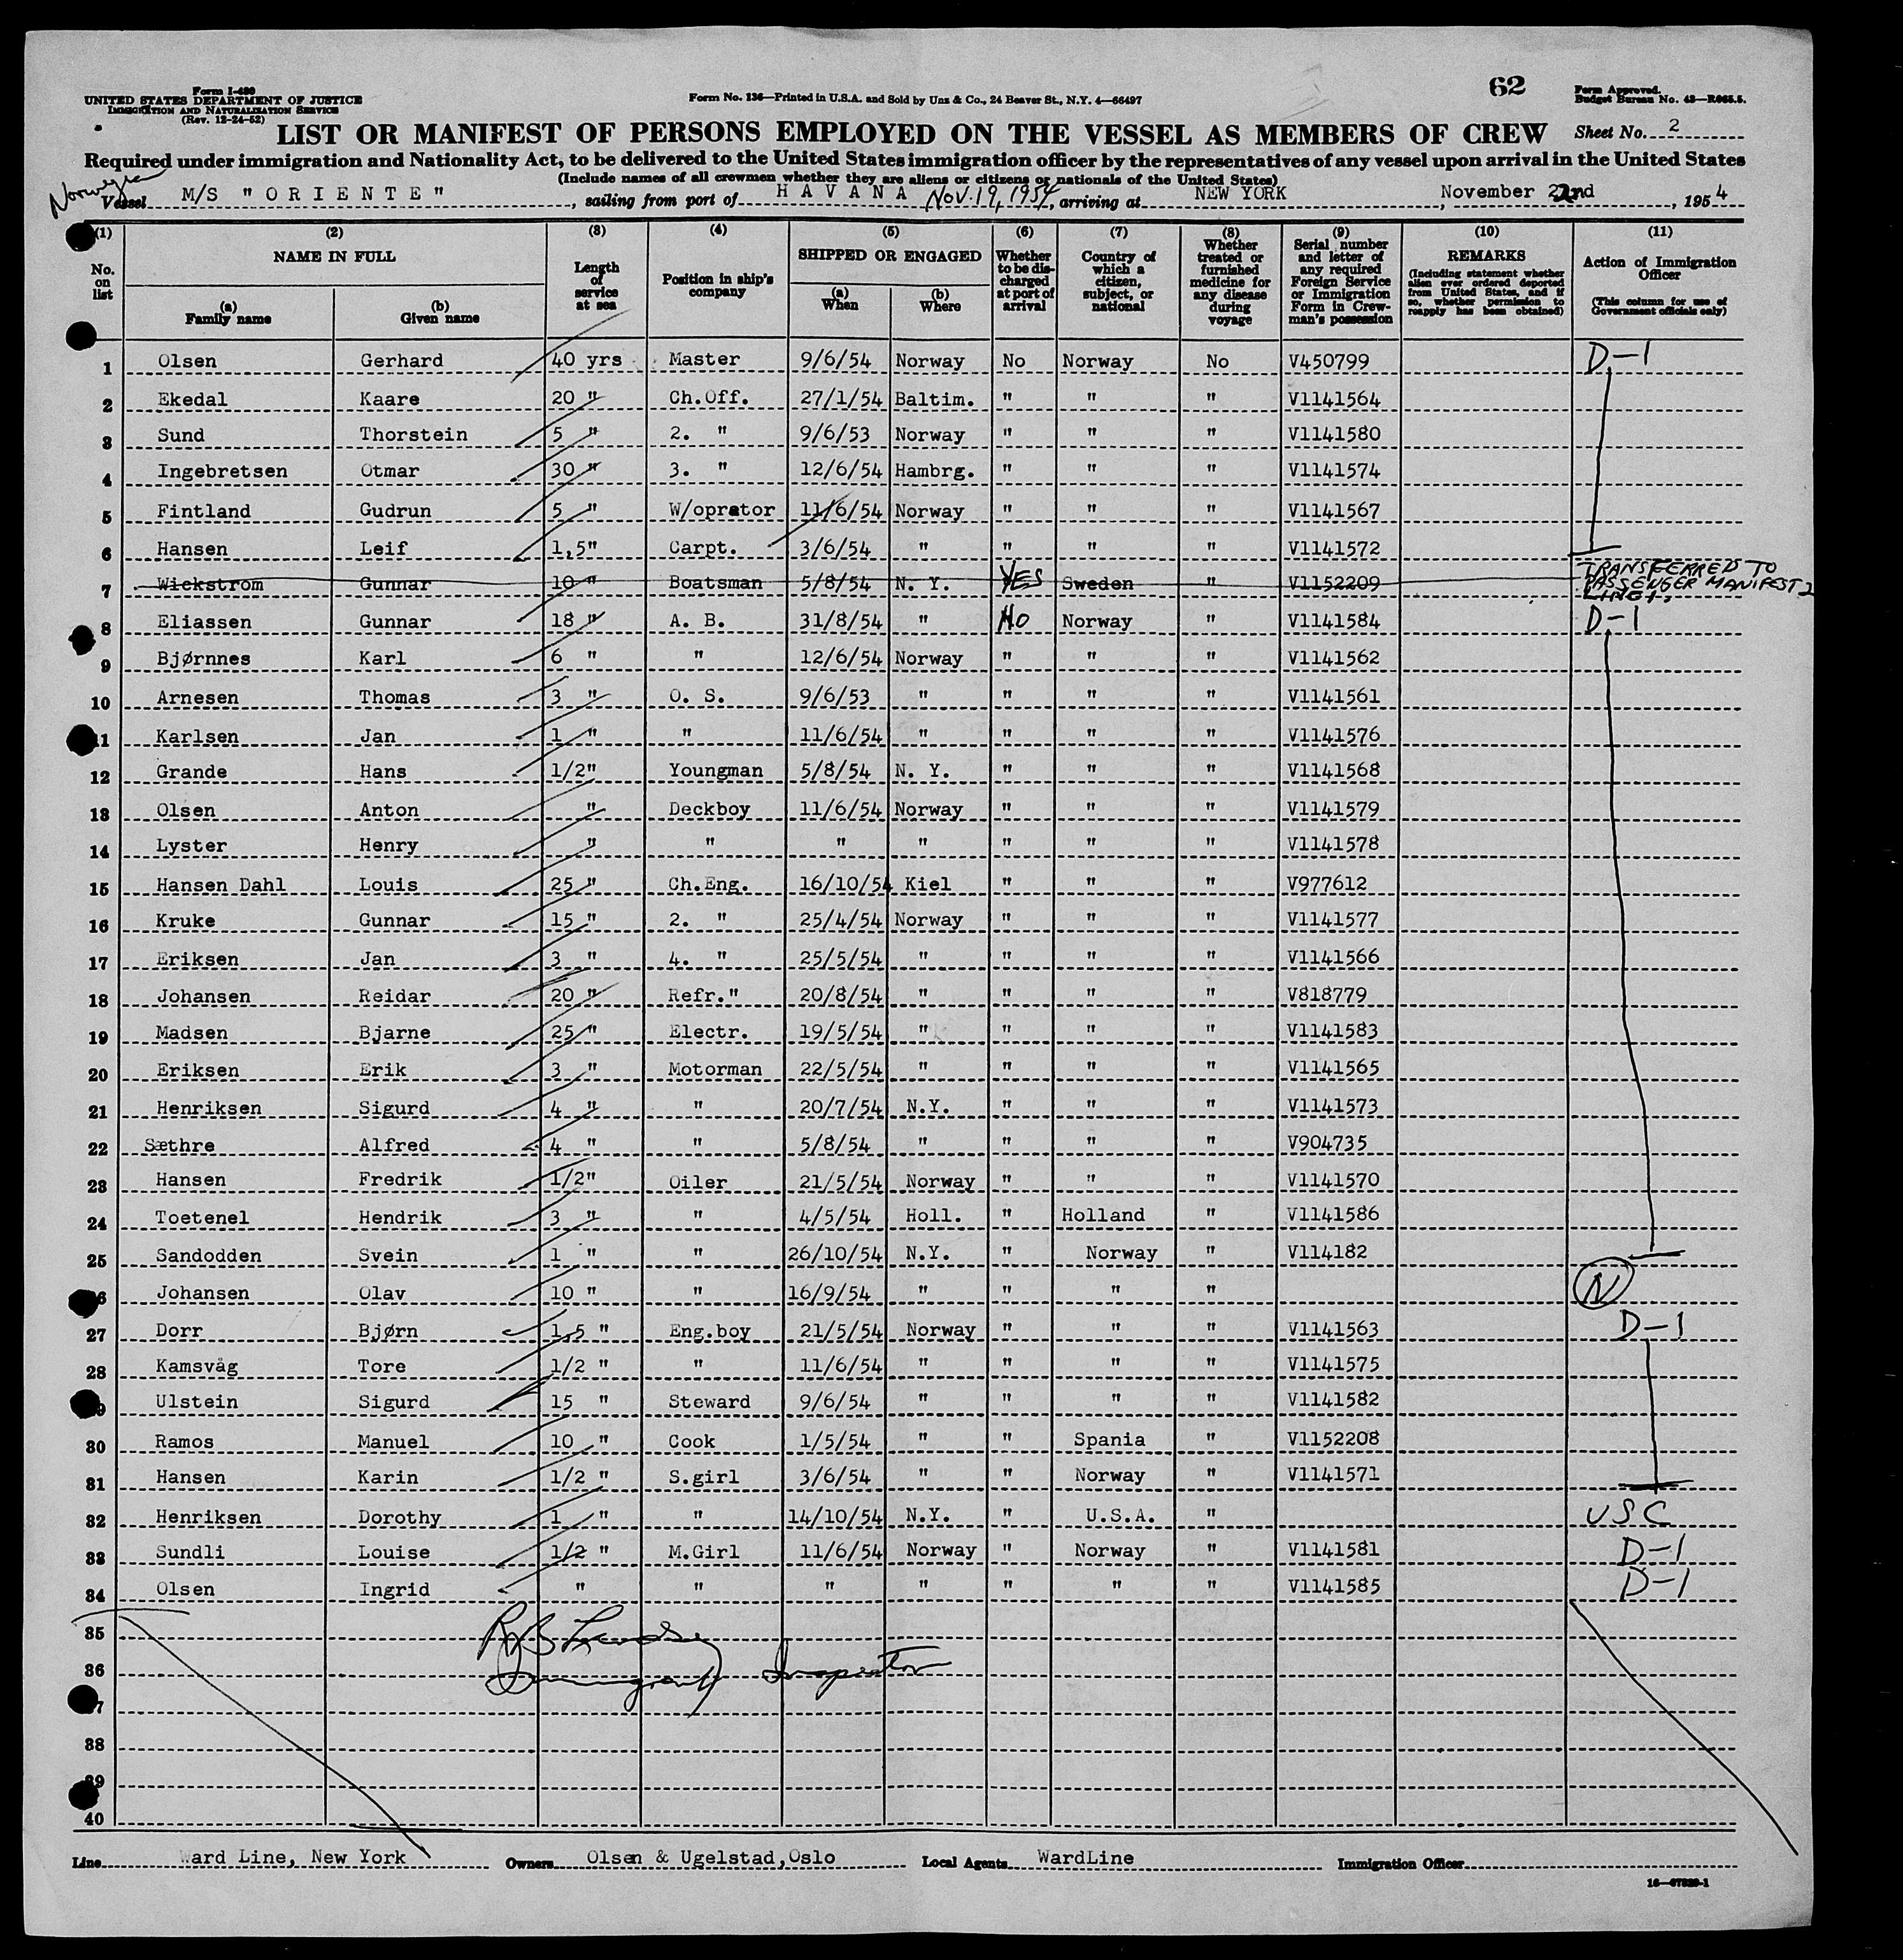 Form I-480
UNITED STATES DEPARTMENT OF JUSTICE
IMMIGRATION AND NATURALIZATION SERVICE
(Rev. 12-24-52)
Form No. 136—Printed in U.S.A. and Sold by Unz & Co., 24 Beaver St., N.Y. 4—66497
62
Form Approved.
Budget Bureau No. 43—R065.5.
LIST OR MANIFEST OF PERSONS EMPLOYED ON THE VESSEL AS MEMBERS OF CREW
Sheet No. 2
Required under immigration and Nationality Act, to be delivered to the United States immigration officer by the representatives of any vessel upon arrival in the United States
(Include names of all crewmen whether they are aliens or citizens or nationals of the United States)
Norwegian
Vessel M/S "ORIENTE", sailing from port of HAVANA Nov. 19, 1954, arriving at NEW YORK, November 22nd, 1954
(1) No. on list
(2) NAME IN FULL
(a) Family name
(b) Given name
(3) Length of service at sea
(4) Position in ship's company
(5) SHIPPED OR ENGAGED
(a) When
(b) Where
(6) Whether to be discharged at port of arrival
(7) Country of which a citizen, subject, or national
(8) Whether treated or furnished medicine for any disease during voyage
(9) Serial number and letter of any required Foreign Service or Immigration Form in Crewman's possession
(10) REMARKS
(Including statement whether alien ever ordered deported from United States, and if so, whether permission to reapply has been obtained)
(11) Action of Immigration Officer
(This column for use of Government officials only)
1 Olsen Gerhard 40 yrs Master 9/6/54 Norway No Norway No V450799 D-1
2 Ekedal Kaare 20 " Ch.Off. 27/1/54 Baltim. " " " V1141564
3 Sund Thorstein 5 " 2. " 9/6/53 Norway " " " V1141580
4 Ingebretsen Otmar 30 " 3. " 12/6/54 Hambrg. " " " V1141574
5 Fintland Gudrun 5 " W/oprator 11/6/54 Norway " " " V1141567
6 Hansen Leif 1,5" Carpt. 3/6/54 " " " " V1141572
7 Wickstrom Gunnar 10 " Boatsman 5/8/54 N. Y. YES Sweden " V1152209 TRANSFERRED TO PASSENGER MANIFEST 2 LINE 1.
8 Eliassen Gunnar 18 " A. B. 31/8/54 " No Norway " V1141584 D-1
9 Bjørnnes Karl 6 " " 12/6/54 Norway " " " V1141562
10 Arnesen Thomas 3 " O. S. 9/6/53 " " " " V1141561
11 Karlsen Jan 1 " " 11/6/54 " " " " V1141576
12 Grande Hans 1/2" Youngman 5/8/54 N. Y. " " " V1141568
13 Olsen Anton " Deckboy 11/6/54 Norway " " " V1141579
14 Lyster Henry " " " " " " " V1141578
15 Hansen Dahl Louis 25 " Ch.Eng. 16/10/54 Kiel " " " V977612
16 Kruke Gunnar 15 " 2. " 25/4/54 Norway " " " V1141577
17 Eriksen Jan 3 " 4. " 25/5/54 " " " " V1141566
18 Johansen Reidar 20 " Refr." 20/8/54 " " " " V818779
19 Madsen Bjarne 25 " Electr. 19/5/54 " " " " V1141583
20 Eriksen Erik 3 " Motorman 22/5/54 " " " " V1141565
21 Henriksen Sigurd 4 " " 20/7/54 N.Y. " " " V1141573
22 Sæthre Alfred 4 " " 5/8/54 " " " " V904735
23 Hansen Fredrik 1/2" Oiler 21/5/54 Norway " " " V1141570
24 Toetenel Hendrik 3 " " 4/5/54 Holl. " Holland " V1141586
25 Sandodden Svein 1 " " 26/10/54 N.Y. " Norway " V114182
26 Johansen Olav 10 " " 16/9/54 " " " " N
27 Dorr Bjørn 1,5 " Eng.boy 21/5/54 Norway " " " V1141563 D-1
28 Kamsvåg Tore 1/2 " " 11/6/54 " " " " V1141575
29 Ulstein Sigurd 15 " Steward 9/6/54 " " " " V1141582
30 Ramos Manuel 10 " Cook 1/5/54 " " Spania " V1152208
31 Hansen Karin 1/2 " S.girl 3/6/54 " " Norway " V1141571
32 Henriksen Dorothy 1 " " 14/10/54 N.Y. " U.S.A. " USC
33 Sundli Louise 1/2 " M.Girl 11/6/54 Norway " Norway " V1141581 D-1
34 Olsen Ingrid " " " " " " " V1141585 D-1
35
36 Immigrant Inspector
37
38
39
40
Line Ward Line, New York Owners Olsen & Ugelstad,Oslo Local Agents WardLine Immigration Officer